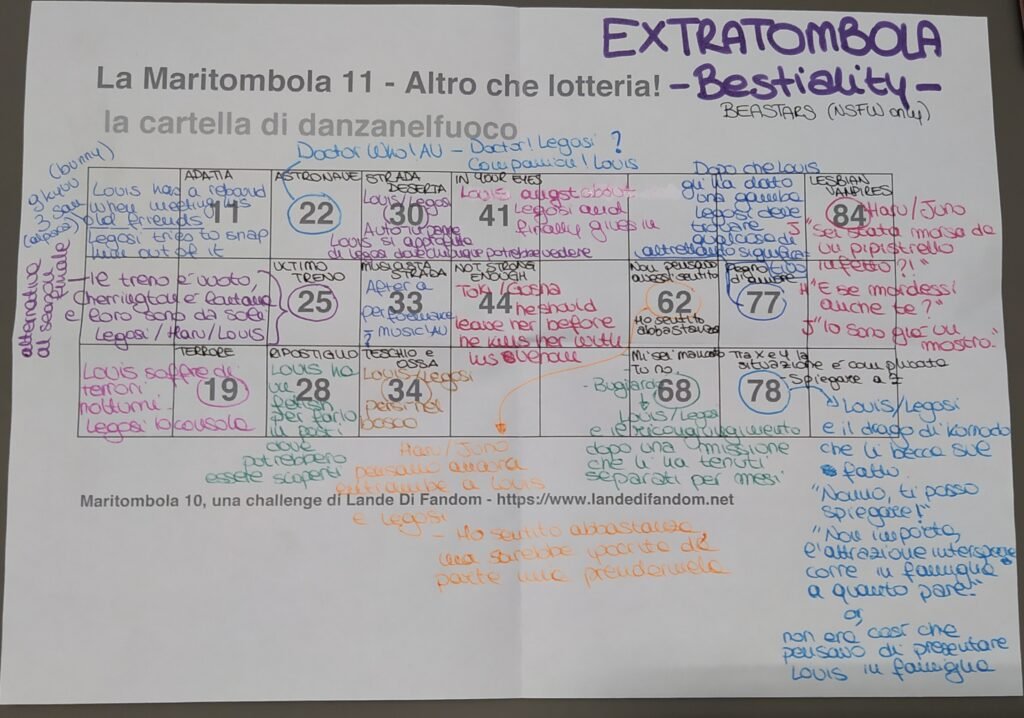 EXTRATOMBOLA
La Maritombola 11 - Altro che lotteria!
- Bestiality -
BEASTARS (NSFW only)
la cartella di danzanelfuoco
Doctor Who!AU - Doctor! Legosi ?
Companion! Louis
(bunny)
alternativa
al season
finale
APATIA
11
Louis has a rebound
when meeting his
old friends
Legosi tries to snap
him out of it
ASTRONAVE
22
STRADA
DESERTA
30
Louis/Legosi
Auto in panne
Louis si approfitta
di Legosi dove chiunque potrebbe vedere
IN YOUR EYES
41
Louis angst about
Legosi and
finally gives in
Dopo che Louis
gli ha dato
una gamba
Legosi deve
trovare
qualcosa di
altrettanto significa-
tivo
LESBIAN
VAMPIRES
84
Haru/Juno
J "Sei stata morsa da
un pipistrello
infetto?!"
H "E se mordessi
anche te?"
J "Io sono già un
mostro."
Il treno è vuoto,
Cherrington e
loro sono da soli
Legosi/Haru/Louis
ULTIMO
TRENO
25
MUSICISTA
STRADA
33
After a
performance
? MUSIC!AU
NOT STRONG
ENOUGH
44
Toki/Gosha
he should
leave her before
he kills her with
his venom
Non pensavo
avessi sentito
62
Ho sentito
abbastanza
Pegno
d'amore
77
Louis soffre di
terrori
notturni.
Legosi lo consola
TERRORE
19
RIPOSTIGLIO
28
Louis ha
un
fetish
per farlo
in posti
dove
potrebbero
essere scoperti
TESCHIO e
OSSA
34
Louis/Legosi
persi nel
bosco
Mi sei mancato
Tu no.
68
- Bugiardo
Louis/Legosi
e il ricongiungimento
dopo una missione
che li ha tenuti
separati per mesi
Tra X e Y la
situazione è complicata
Spiegare a Z
78
Louis/Legosi
e il drago di komodo
che li becca sul
fatto.
"Nonno, ti posso
spiegare!"
"Non importa,
l'attrazione interspecie
corre in famiglia
a quanto pare."
or
non era così che
pensavo di presentare
Louis in famiglia
Haru/Juno
pensano ancora
entrambe a Louis
e Legosi
- Ho sentito abbastanza,
ma sarebbe ipocrita da
parte mia prendermela
Maritombola 10, una challenge di Lande Di Fandom - https://www.landedifandom.net